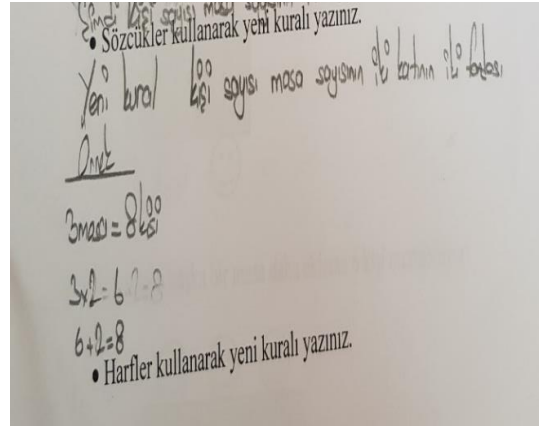 Şimdi kişi sayısı masa sayısının
• Sözcükler kullanarak yeni kuralı yazınız.
Yeni kural kişi sayısı masa sayısının iki katının iki fazlası
Örnek
3 masa = 8 kişi
3x2=6+2=8
6+2=8
• Harfler kullanarak yeni kuralı yazınız.